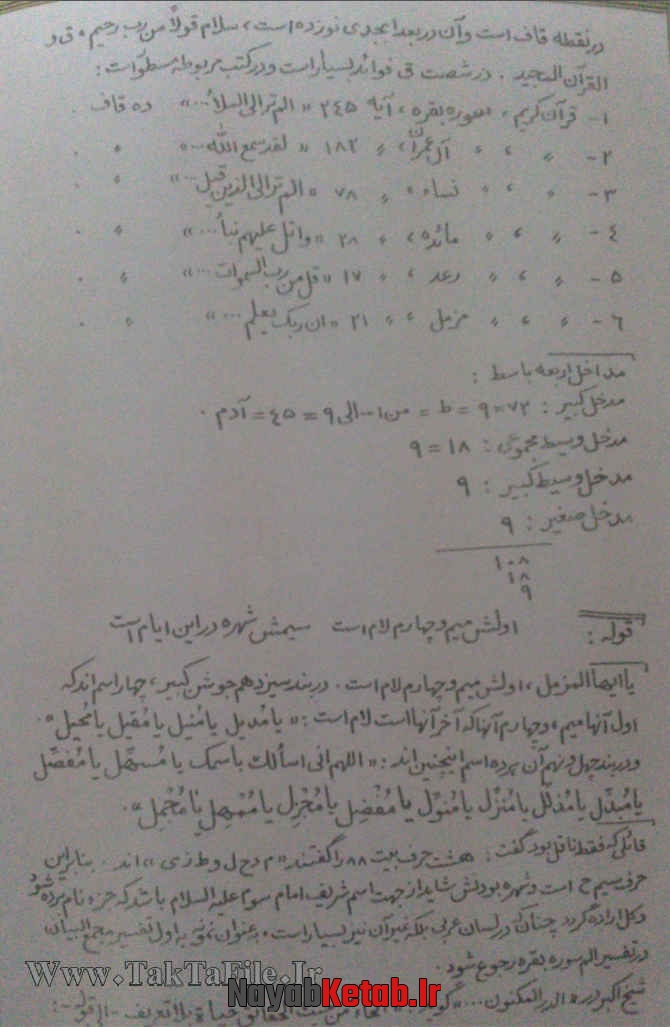 در نقطه قاف است و آن در بعد ابجدی نوزده است، سلام قولاً من رب رحیم، ق و
القرآن المجید. در شصت ق فوائد بسیار است و در کتب مربوطه مسطور است:
۱- قرآن کریم، سوره بقره، آیه ۲۴۵ «الم تر الی الملأ...» ده قاف.
۲- " ، " آل عمران، " ۱۸۲ «لقد سمع الله...» " .
۳- " ، " نساء، " ۷۸ «الم تر الی الذین قیل...» " .
۴- " ، " مائده، " ۲۸ «واتل علیهم نبأ...» " .
۵- " ، " رعد، " ۱۷ «قل من رب السموات...» " .
۶- " ، " مزمل، " ۲۱ «ان ربک یعلم...» " .
مداخل اربعه باسط:
مدخل کبیر: ۷۲=۹=ط= من ۱ الی ۹=۴۵=آدم.
مدخل وسیط مجموعی: ۱۸=۹
مدخل وسیط کبیر: ۹
مدخل صغیر: ۹
۱۰۸
۱۸
۹
قوله: اولش میم و چهارم لام است سیمش شهره در این ایام است
یا ایها المزمل، اولش میم و چهارم لام است. در بند سیزدهم جوشن کبیر، چهار اسم اند که
اول آنها میم، و چهارم آنها که آخر آنهااست لام است: «یا مُدیل یا مُنیل یا مُقیل یا مُحیل».
و در بند چهل و نهم آن پر ده اسم اینچنین اند: «اللهم انی اسألک باسمک یا مُسهّل یا مُفصّل
یا مُبدّل یا مُذلّل یا مُنزّل یا مُنوّل یا مُفضِل یا مُجزِل یا مُمهِل یا مُجمِل».
قائلی که فقط ناقل بود گفت: هشت حرف بیت ۸۸ را گفتند «م د ح ل و ط ز ی» اند. بنابر این
حرف سیم ح است و شهره بودنش شاید از جهت اسم شریف امام سوم علیه السلام باشد که جزء نام برده شود
و کل اراده گردد چنان که در لسان عربی بلکه غیر آن نیز بسیار است، به عنوان نمونه به اول تفسیر مجمع البیان
در تفسیر الم سوره بقره رجوع شود.
شیخ اکبر در «الدر المکنون...» گوید: «الحاء من حیث الحقائق حیاة بلا تعریف- الی قوله-:
www.TakTaFile.Ir
NayabKetab.Ir